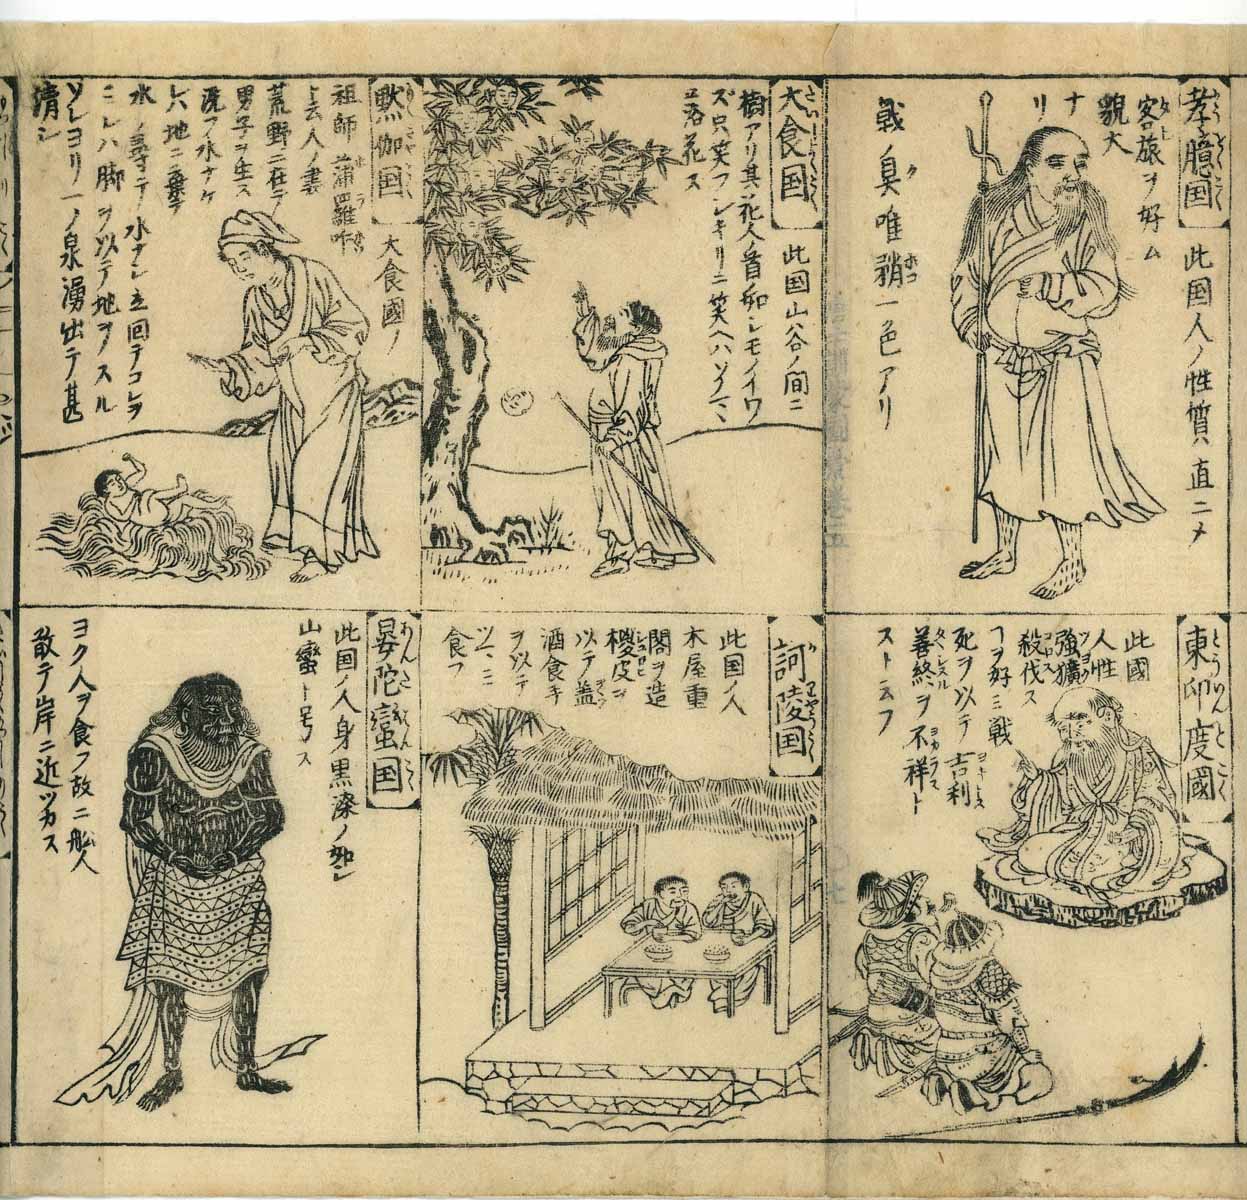 孝臆国
此国人ノ性質直ニメ
客旅ヲ好ム
貌大
ナ
リ
戦ノ具唯矟一色アリ
大食国
此国山谷ノ間ニ
樹アリ其花人ノ首ノ如シモノイワ
ズ只笑フシキリニ笑ヘハ
落花ス
黙伽国
大食國ノ
祖師蒲羅吽
ト云人ノ妻
荒野ニ在テ
男子ヲ生ス
洗フ水ナケ
レハ地ニ棄テ
水ノ尋子テ水ナシ立回テコレヲ
ミレハ脚ヲ以テ地ヲスル
ソレヨリ一ノ泉湧出テ甚
清シ
東印度國
此國
人性
強獷
殺伐ス
ヿヲ好ミ戦
死ヲ以テ吉利
善終ヲ不祥ト
ストニ云フ
訶陵国
此国ノ人
木屋重
閣ヲ造
椶皮ヲ
以テ蓋
酒食キ
ヲ以テ
ツヽミ
食フ
晏陀蠻国
此国ノ人身黒漆ノ如シ
山蠻ト号ス
ヨク人ヲ食フ故ニ舩人
敢テ岸ニ近ツカス